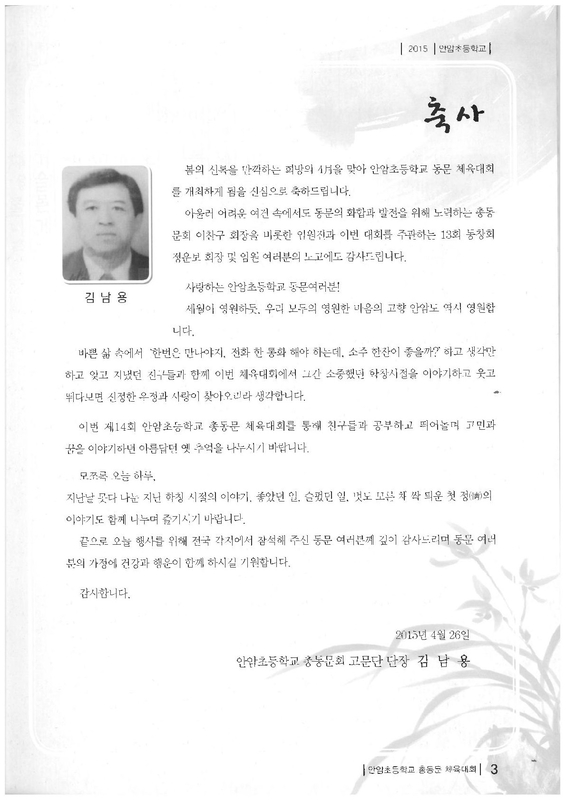 2015 안암초등학교
축사
봄의 신록을 만끽하는 희망의 4月을 맞아 안암초등학교 동문 체육대회
를 개최하게 됨을 진심으로 축하드립니다.
아울러 어려운 여건 속에서도 동문의 화합과 발전을 위해 노력하는 총동
문회 이찬구 회장을 비롯한 임원진과 이번 대회를 주관하는 13회 동창회
정운보 회장 및 임원 여러분의 노고에도 감사드립니다.
김 남 용
사랑하는 안암초등학교 동문여러분!
세월이 영원하듯, 우리 모두의 영원한 마음의 고향 안암도 역시 영원합
니다.
바쁜 삶 속에서 '한번은 만나야지, 전화 한 통화 해야 하는데, 소주 한잔이 좋을까?' 하고 생각만
하고 잊고 지냈던 친구들과 함께 이번 체육대회에서 그간 소중했던 학창시절을 이야기하고 웃고
뛰다보면 진정한 우정과 사랑이 찾아오리라 생각합니다.
이번 제14회 안암초등학교 총동문 체육대회를 통해 친구들과 공부하고 뛰어놀며 고민과
꿈을 이야기하던 아름답던 옛 추억을 나누시기 바랍니다.
모쪼록 오늘 하루,
지난날 못다 나눈 지난 학창 시절의 이야기, 좋았던 일, 슬펐던 일, 멋도 모른 채 싹 틔운 첫 정(情)의
이야기도 함께 나누며 즐기시기 바랍니다.
끝으로 오늘 행사를 위해 전국 각지에서 참석해 주신 동문 여러분께 깊이 감사드리며 동문 여러
분의 가정에 건강과 행운이 함께 하시길 기원합니다.
감사합니다.
2015년 4월 26일
안암초등학교 총동문회 고문단 단장 김 남 용
안암초등학교 총동문 체육대회 3